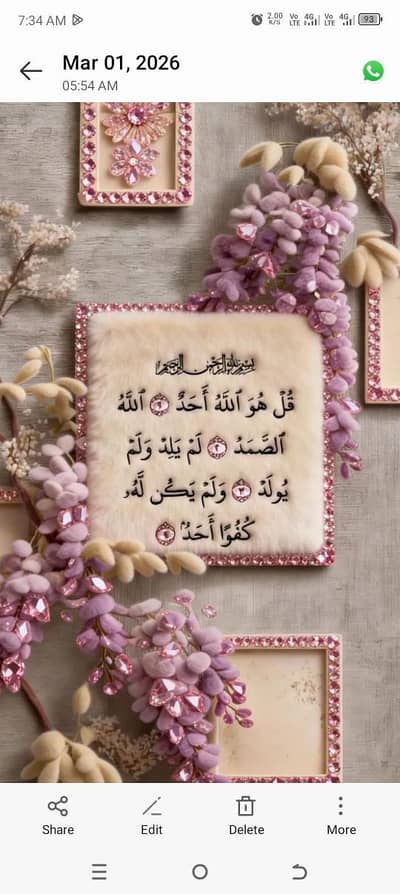 7:34 AM
2.00 K/S
Vo LTE 4G
Vo LTE 4G
93
Mar 01, 2026
05:54 AM
بِسْمِ اللَّهِ الرَّحْمَٰنِ الرَّحِيمِ
قُلْ هُوَ ٱللَّهُ أَحَدٌ ١ ٱللَّهُ
ٱلصَّمَدُ ٢ لَمْ يَلِدْ وَلَمْ
يُولَدْ ٣ وَلَمْ يَكُن لَّهُۥ
كُفُوًا أَحَدٌۢ ٤
Share
Edit
Delete
More